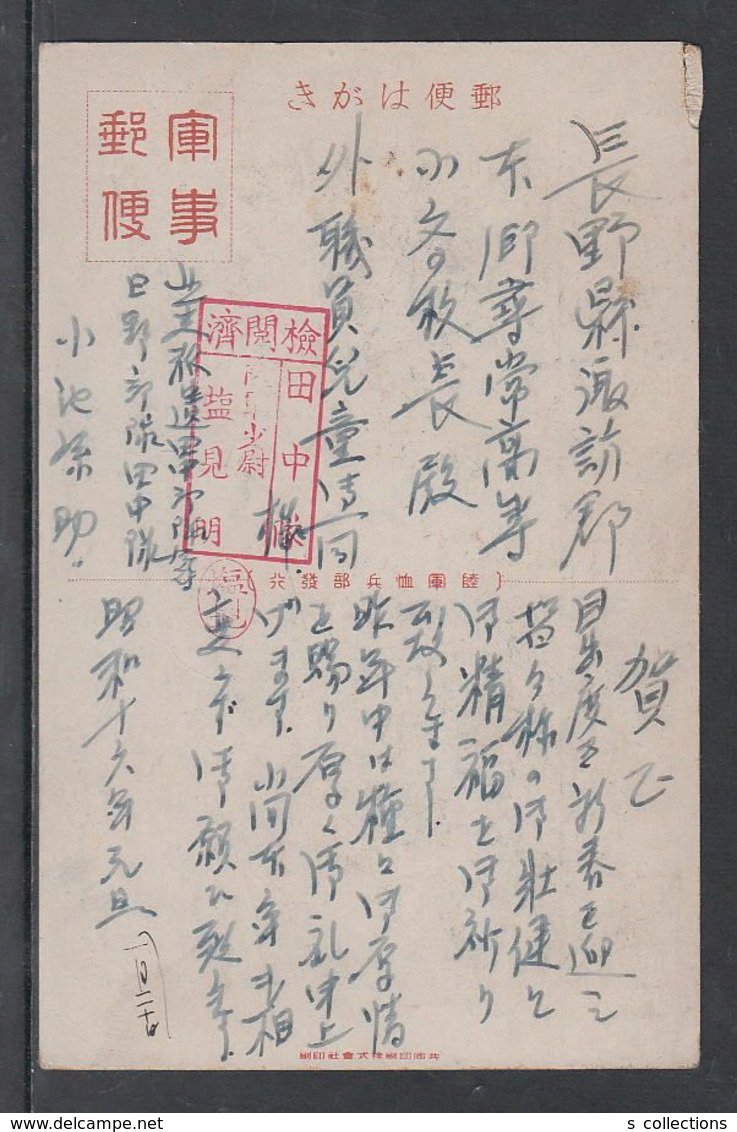 郵便はがき
軍事
郵便
長野縣諏訪郡
本郷尋常高等
小文の校長殿
外職員児童清同
様
検閲済
田中隊
陸軍少尉
塩見明
塩見
日野部隊田中隊
小池
(陸軍恤兵部發行)
賀正
目出度き新春を迎え
皆々様の御壮健と
御精福を御祈り
致します.
昨年中は種々御厚情
を賜り厚く御礼申上
げます. 尚本年も相
御願ひ致します.
昭和十六年元旦
一月二十
共同印刷株式會社印刷
s collections
delcampe.net